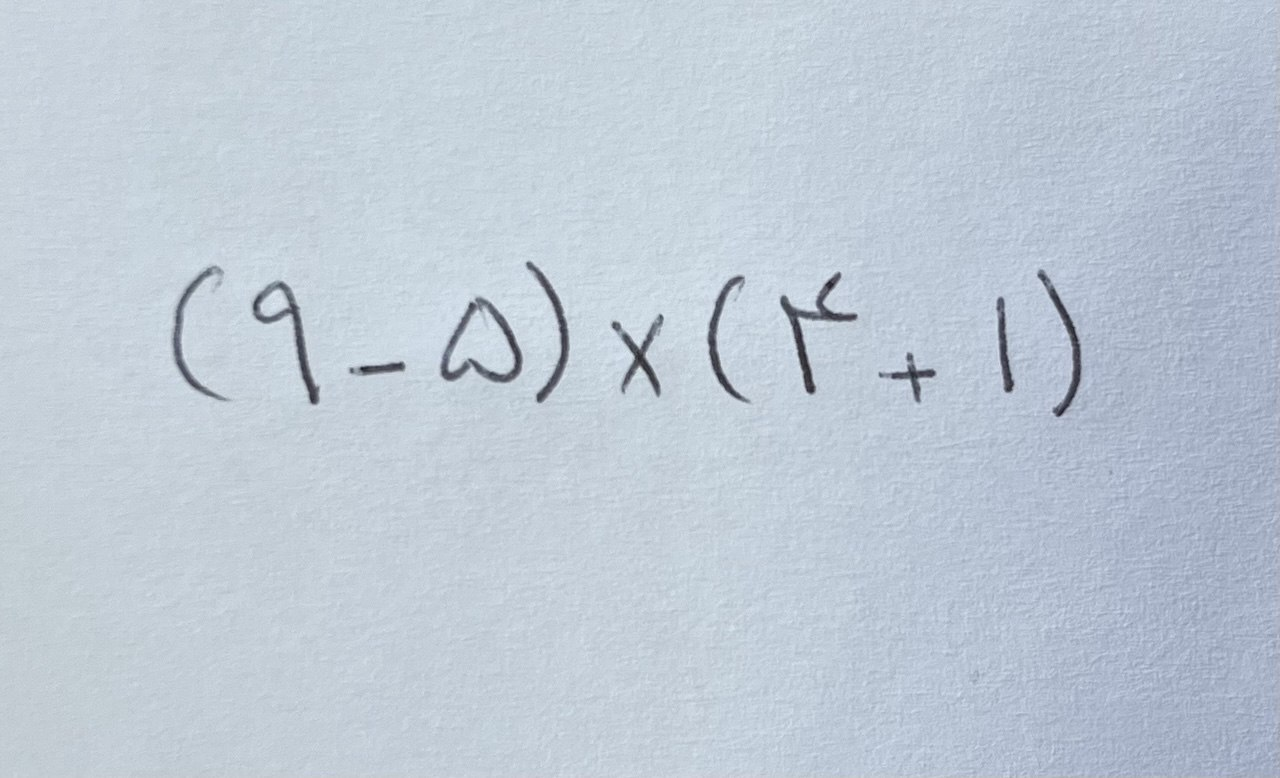 (۹ - ۵) × (۴ + ۱)